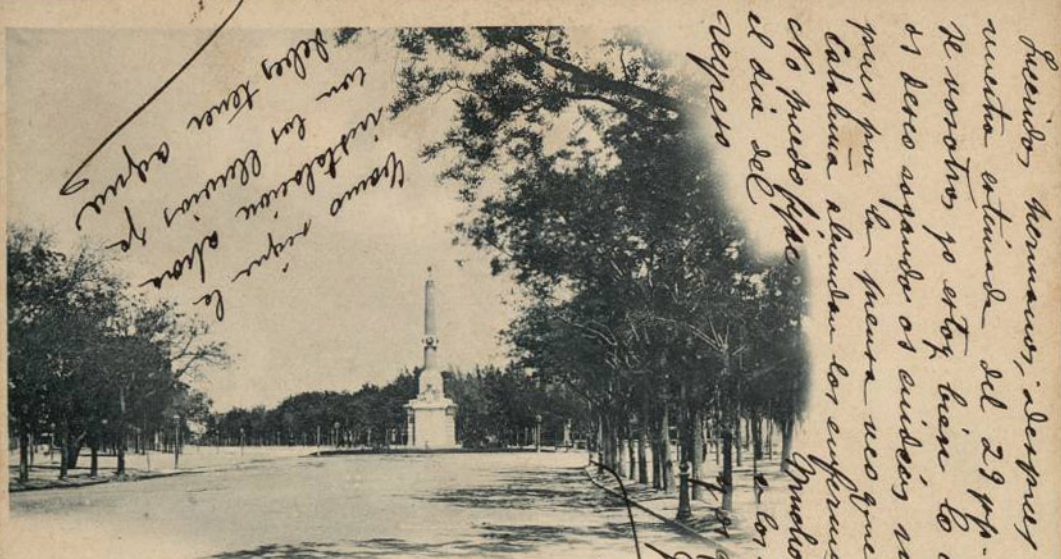 Queridos hermanos, despues
vuestra estimada del 29 pp.
de vosotros yo estoy bien lo
os deseo segundo os cuideis
pues por la prensa veo que
Cataluña abundan los enfermos
No puedo fijar
el dia del
regreso
Mucho
a los
Como sigue la
instalacion
con las lluvias
debes tener